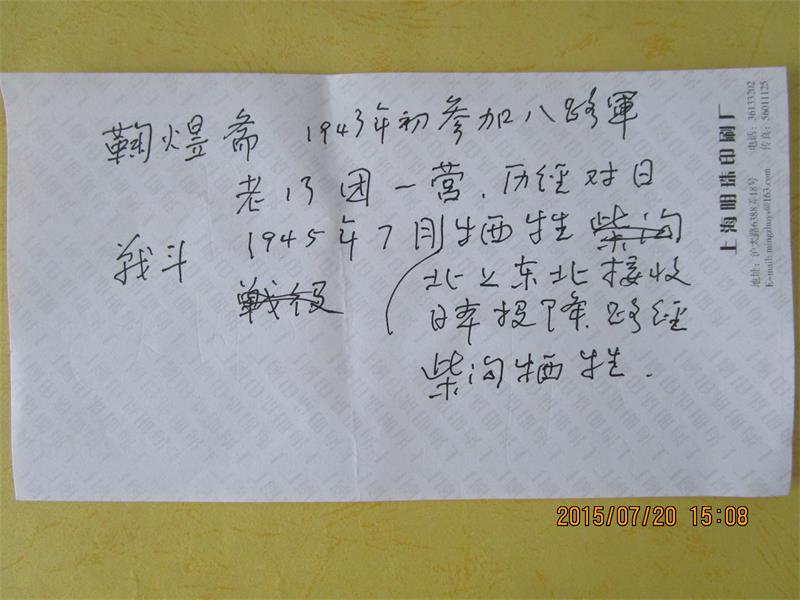 鞠煜斋 1943年初参加八路軍
老13团一营.历经对日
战斗 1945年7月牺牲柴沟
战役
北上东北接收
日本投降.路经
柴沟牺牲.
上海明珠印刷厂
地址:沪太路6388弄18号 电话:36133202
E-mail:mingzhuys@163.com 传真:56011125
2015/07/20 15:08